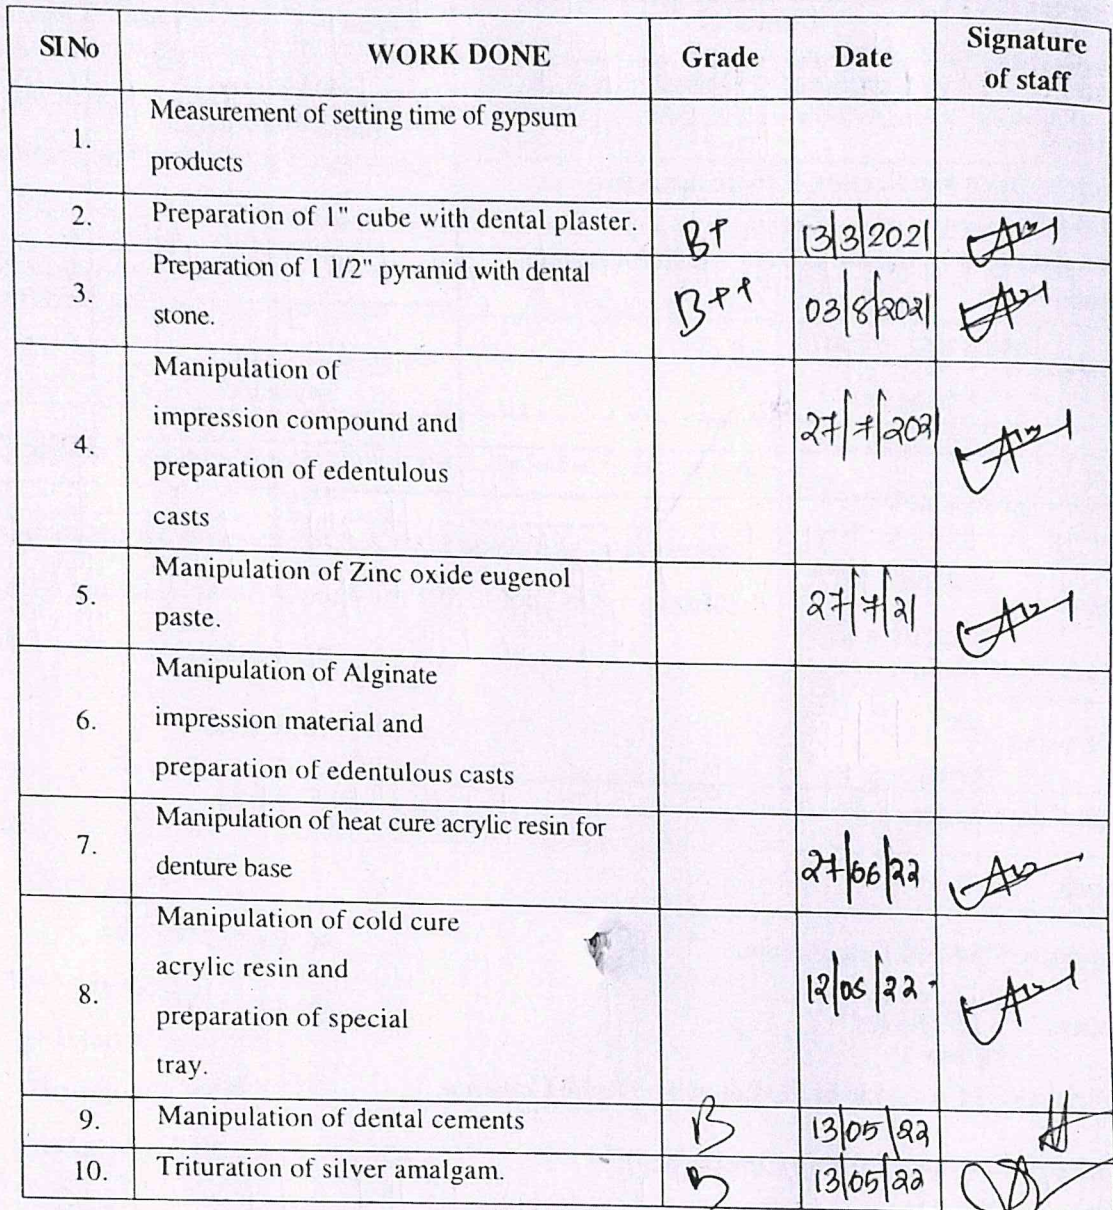 SI No WORK DONE Grade Date Signature of staff
1. Measurement of setting time of gypsum
products
2. Preparation of 1" cube with dental plaster. B+ 13/3/2021
3. Preparation of 1 1/2" pyramid with dental
stone. B++ 03/8/2021
4. Manipulation of
impression compound and 27/7/2021
preparation of edentulous
casts
5. Manipulation of Zinc oxide eugenol
paste. 27/7/21
6. Manipulation of Alginate
impression material and
preparation of edentulous casts
7. Manipulation of heat cure acrylic resin for
denture base 27/06/22
8. Manipulation of cold cure
acrylic resin and 12/05/22
preparation of special
tray.
9. Manipulation of dental cements B 13/05/22
10. Trituration of silver amalgam. B 13/05/22